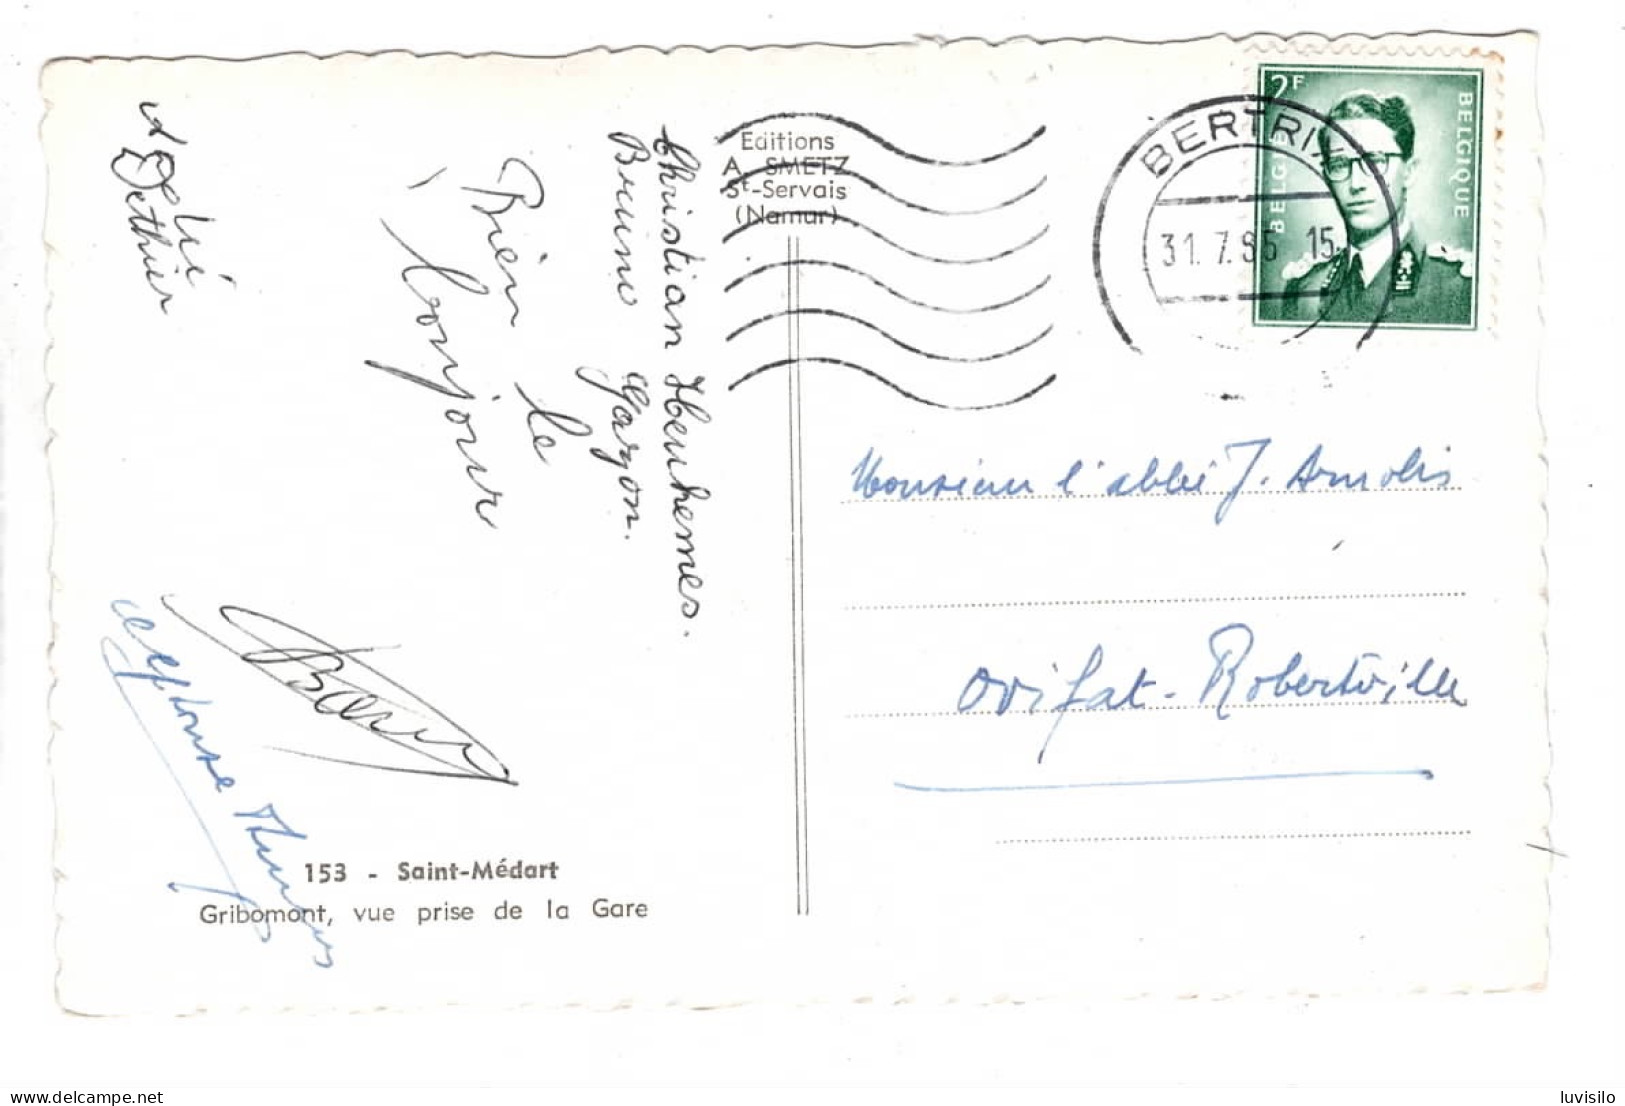 Christian Heukemes.
Bruno Garçon.
Bien le
bonjour
Dethier
Editions
A. SMETZ
St-Servais
(Namur)
BERTRIX
31.7.   15
2F
BELGIE
BELGIQUE
Monsieur l'abbé J. Arnolis
Ovifat-Robertville
153 - Saint-Médart
Gribomont, vue prise de la Gare
delcampe.net
luvisilo